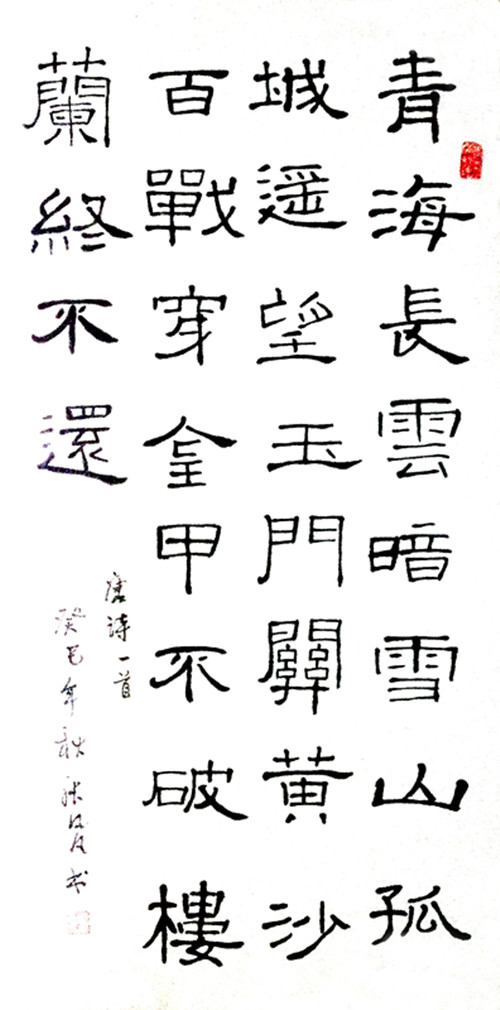 青海長雲暗雪山孤
城遥望玉門關黄沙
百戰穿金甲不破樓
蘭終不還
唐诗一首
癸巳年秋
书